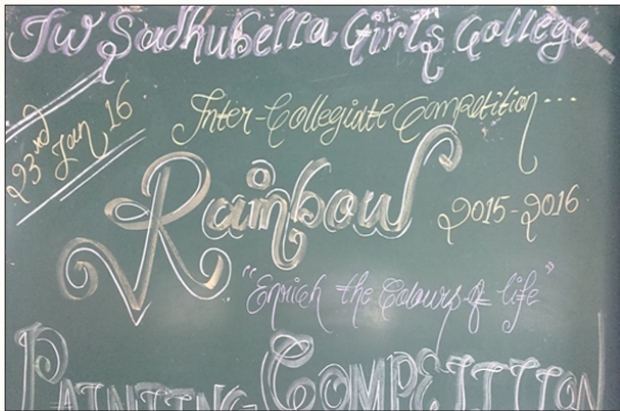 Jw Sadhubella Girls College
23rd Jan 16
Inter-Collegiate Competition...
Rainbow
2015-2016
"Enrich the Colours of life"
PAINTING COMPETITION